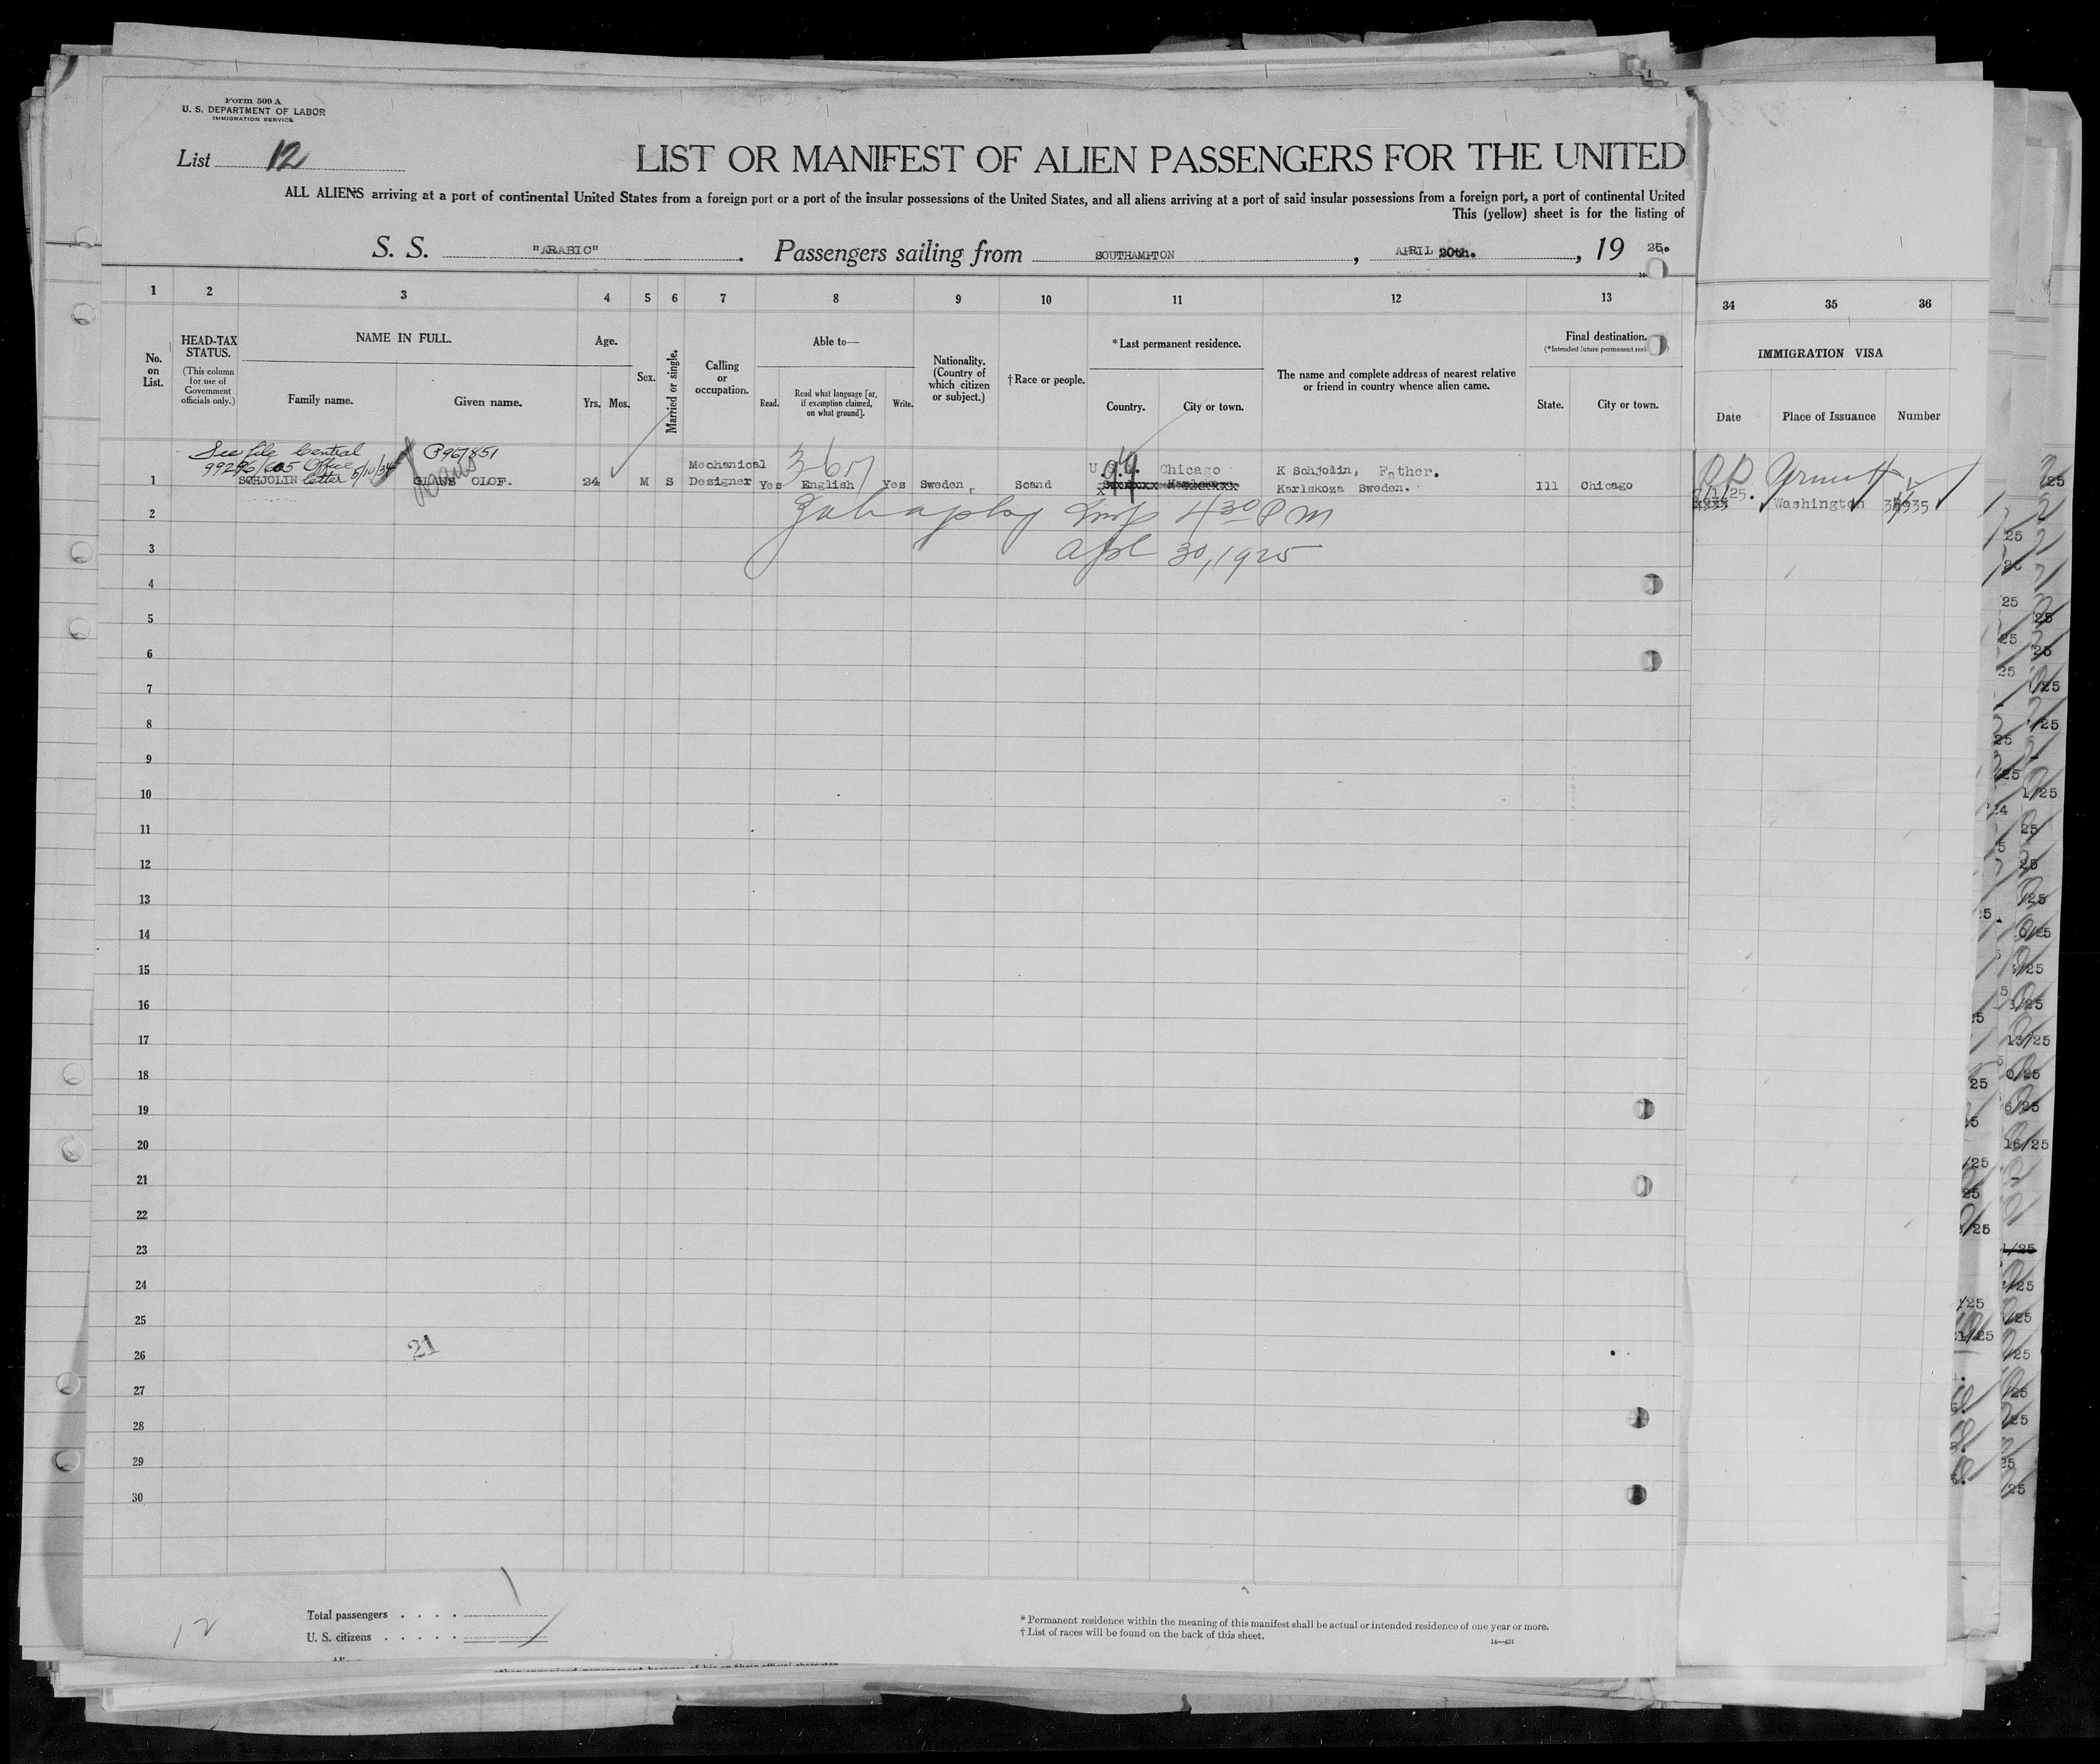 Form 500 A
U. S. DEPARTMENT OF LABOR
IMMIGRATION SERVICE
List 12
LIST OR MANIFEST OF ALIEN PASSENGERS FOR THE UNITED
ALL ALIENS arriving at a port of continental United States from a foreign port or a port of the insular possessions of the United States, and all aliens arriving at a port of said insular possessions from a foreign port, a port of continental United
This (yellow) sheet is for the listing of
S. S. "ARABIC". Passengers sailing from SOUTHAMPTON, APRIL 20th., 19 25.
1 2 3 4 5 6 7 8 9 10 11 12 13
34 35 36
No. on List.
HEAD-TAX STATUS.
(This column for use of Government officials only.)
NAME IN FULL.
Family name. Given name.
Age.
Yrs. Mos.
Sex.
Married or single.
Calling or occupation.
Able to—
Read. Read what language [or, if exemption claimed, on what ground]. Write.
Nationality. (Country of which citizen or subject.)
†Race or people.
*Last permanent residence.
Country. City or town.
The name and complete address of nearest relative or friend in country whence alien came.
Final destination.
(*Intended future permanent
State. City or town.
IMMIGRATION VISA
Date Place of Issuance Number
See file Central P967851
99296/605 Office
letter 5/10/34
1 SOHJOLIN OLOF. 24 M S Mechanical Designer Yes English Yes Sweden Scand U.S. Chicago K Sohjolin, Father.
Karlskoza Sweden. Ill Chicago
Washington
2 430 PM
3 Apl 30, 1925
4
5
6
7
8
9
10
11
12
13
14
15
16
17
18
19
20
21
22
23
24
25
26
27
28
29
30
21
12
Total passengers . . . .
U. S. citizens . . . . .
* Permanent residence within the meaning of this manifest shall be actual or intended residence of one year or more.
† List of races will be found on the back of this sheet.